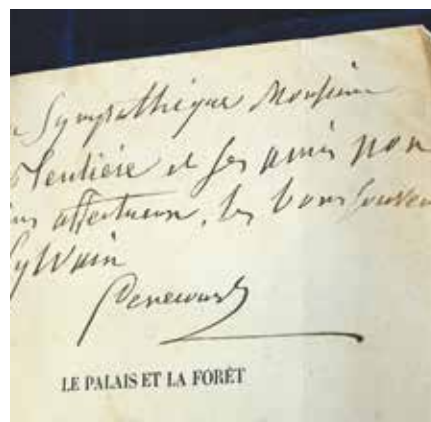 Sympathique Monsieur
et ses amis non
affectueux, les bons souven
Sylvain
Denecourt
LE PALAIS ET LA FORÊT